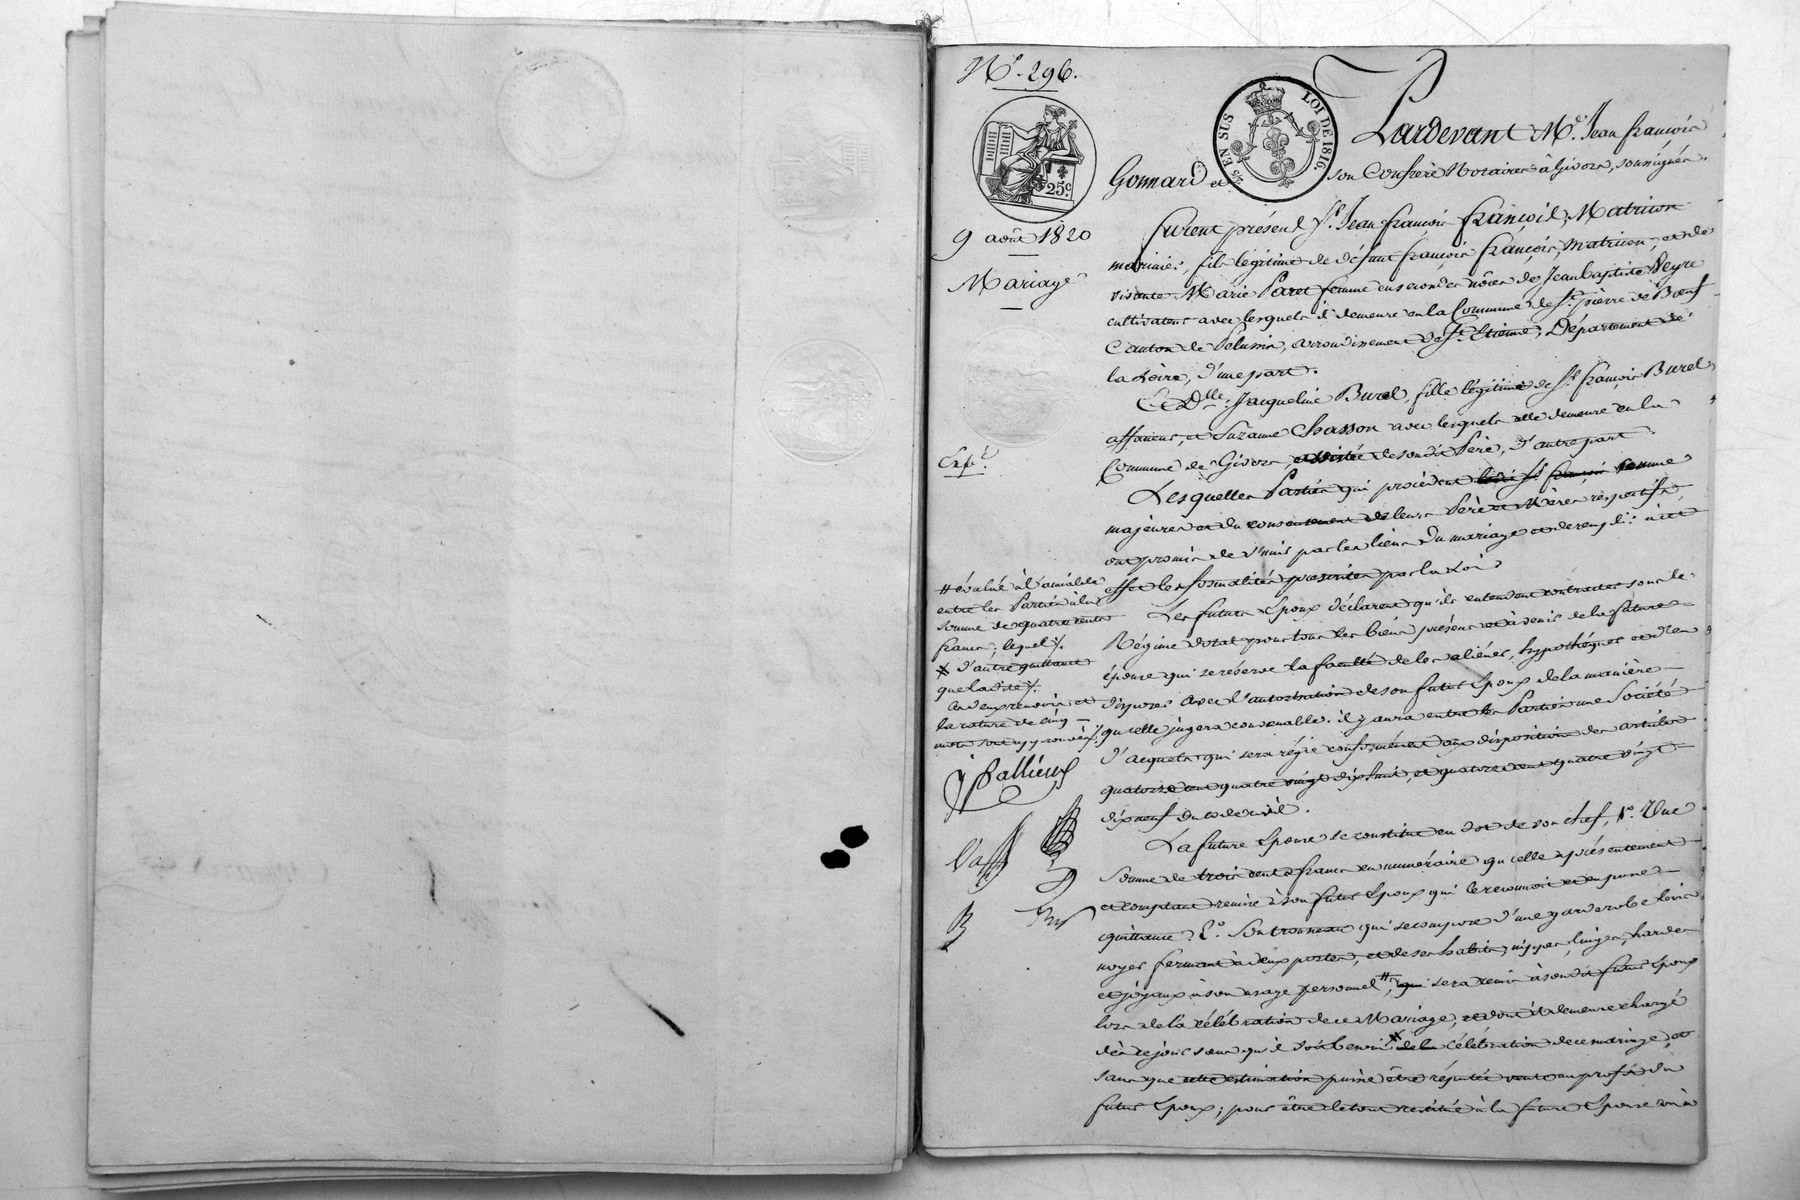 N.° 296.
EN SUS
LOI DE 1816.
25c.
9 août 1820
Mariage
Pardevant M.e Jean françois
Gonnard et son Confrère Notaires à Givors, soussignés.
furent présent S.r Jean françois françois, Matricon
marinier, fils légitime de défunt françois françois, Matricon, et de
vivante Marie Paret femme en secondes nôces de Jean baptiste Peyre
cultivateur avec lesquels il demeure en la Commune de St. pierre de Boeuf
Canton de Pelussin, arrondissement de St. Etienne, Département de
la Loire, d'une part.
Et D.lle Jacqueline Burel, fille légitime de S.r françois Burel
affaneur, et Suzanne Chasson avec lesquels elle demeure en la
Commune de Givors, de son dit Père, d'autre part
Lesquelles Parties qui procèdent comme
majeures et du consentement de leurs Père et Mères respectifs,
ont promis de s'unir par les liens du mariage et de remplir à cet
effet les formalités prescrites par la Loi.
Les futurs Epoux déclarent qu'ils entendent contracter sous le
Régime dotal pour tous les biens présens et à venir de la future
épouse qui se réserve la faculté de les aliéner, hypothéquer et d'en
disposer avec l'autorisation de son futur Epoux de la manière
qu'elle jugera convenable. il y aura entre les Parties une Société
d'acquets qui sera régie conformément aux dispositions des articles
quatorze cent quatre vingt dix huit, et quatorze cent quatre vingt
dix neuf du code civil.
La future Epouse se constitue en dot de son chef, 1.° Une
Somme de trois cents francs en numéraire qu'elle a présentement
et comptant remise à son futur Epoux qui le reconnoit et en passe
quittance. 2.° Son trousseau qui se compose d'une garderobe bois
noyer fermant à deux portes, et de ses habits, nippes, linges, hardes
et joyaux à son usage personnel #, qui sera remis à son dit futur Epoux
lors de la célébration de ce Mariage, et dont il demeure chargé
dès ce jour sans qu'il soit besoin x de la célébration de ce mariage, et
sans que cette estimation puisse être réputée vente au profit du
futur Epoux; pour être le tout restitué à la future Epouse ou à
Exp.é
# évalué à l'amiable
entre les Parties à la
somme de quatre cents
francs; lequel /.
x d'autre quittance
que ladite /.
Ces deux renvois et
la rature de cinq
mots sont approuvés /.